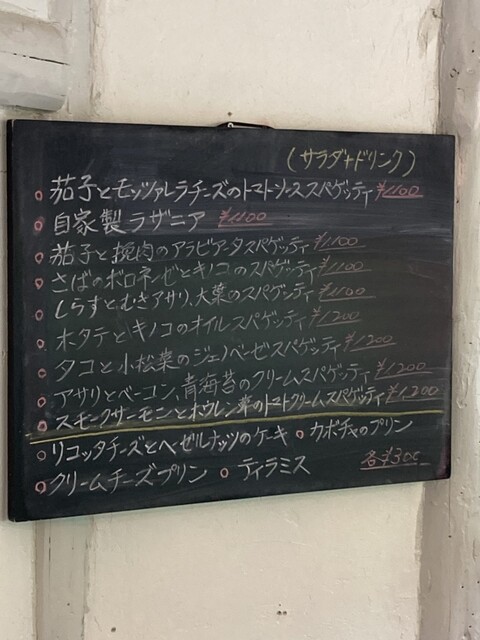 (サラダ+ドリンク)
○茄子とモッツァレラチーズのトマトソーススパゲッティ ¥1100
○自家製ラザニア ¥1100
○茄子と挽肉のアラビアータスパゲッティ ¥1100
○さばのボロネーゼとキノコのスパゲッティ ¥1100
○しらすとむきアサリ、大葉のスパゲッティ ¥1100
○ホタテとキノコのオイルスパゲッティ ¥1200
○タコと小松菜のジェノベーゼスパゲッティ ¥1200
○アサリとベーコン、青海苔のクリームスパゲッティ ¥1200
○スモークサーモンとホウレン草のトマトクリームスパゲッティ ¥1,200
○リコッタチーズとヘーゼルナッツのケーキ ○カボチャのプリン
○クリームチーズプリン ○ティラミス 各¥300